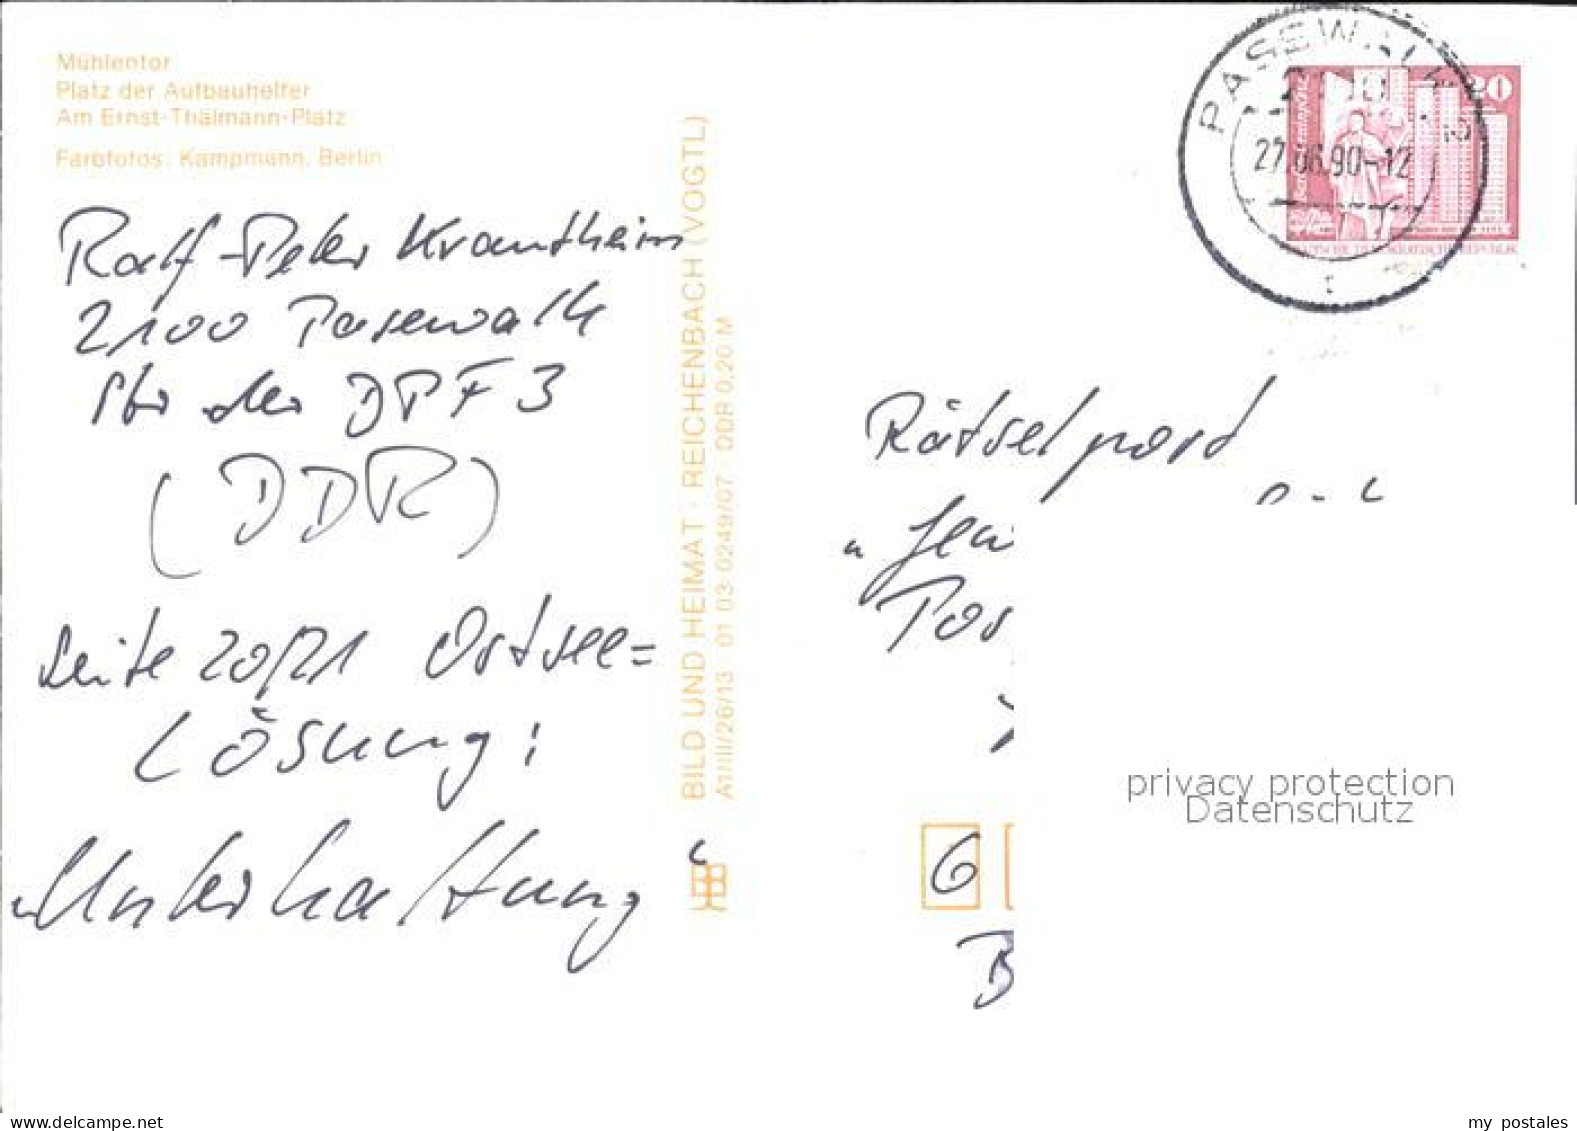 Mühlentor
Platz der Aufbauhelfer
Am Ernst-Thälmann-Platz
Farbfotos: Kampmann, Berlin
Ralf-Peter Krautheim
2100 Pasewalk
Str der DSF 3
(DDR)
Seite 20/21 Ostsee=
Lösung:
"Unterhaltung"
BILD UND HEIMAT · REICHENBACH (VOGTL)
A1/III/26/13 01 03 0249/07 · DDR 0,20 M
PASEWALK
2100
27.06.90-12
20
DEUTSCHE DEMOKRATISCHE REPUBLIK
Rätselpost
6
B
privacy protection
Datenschutz
www.delcampe.net
my_postales